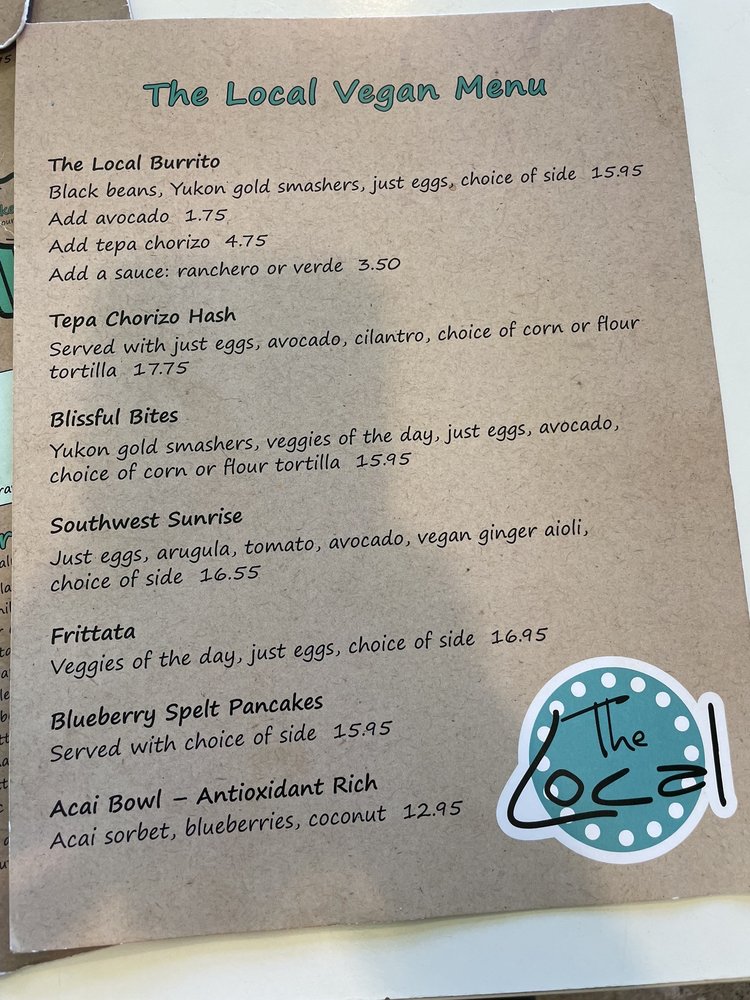 The Local Vegan Menu
The Local Burrito
Black beans, Yukon gold smashers, just eggs, choice of side 15.95
Add avocado 1.75
Add tepa chorizo 4.75
Add a sauce: ranchero or verde 3.50
Tepa Chorizo Hash
Served with just eggs, avocado, cilantro, choice of corn or flour
tortilla 17.75
Blissful Bites
Yukon gold smashers, veggies of the day, just eggs, avocado,
choice of corn or flour tortilla 15.95
Southwest Sunrise
Just eggs, arugula, tomato, avocado, vegan ginger aioli,
choice of side 16.55
Frittata
Veggies of the day, just eggs, choice of side 16.95
Blueberry Spelt Pancakes
Served with choice of side 15.95
Acai Bowl – Antioxidant Rich
Acai sorbet, blueberries, coconut 12.95
The
Local